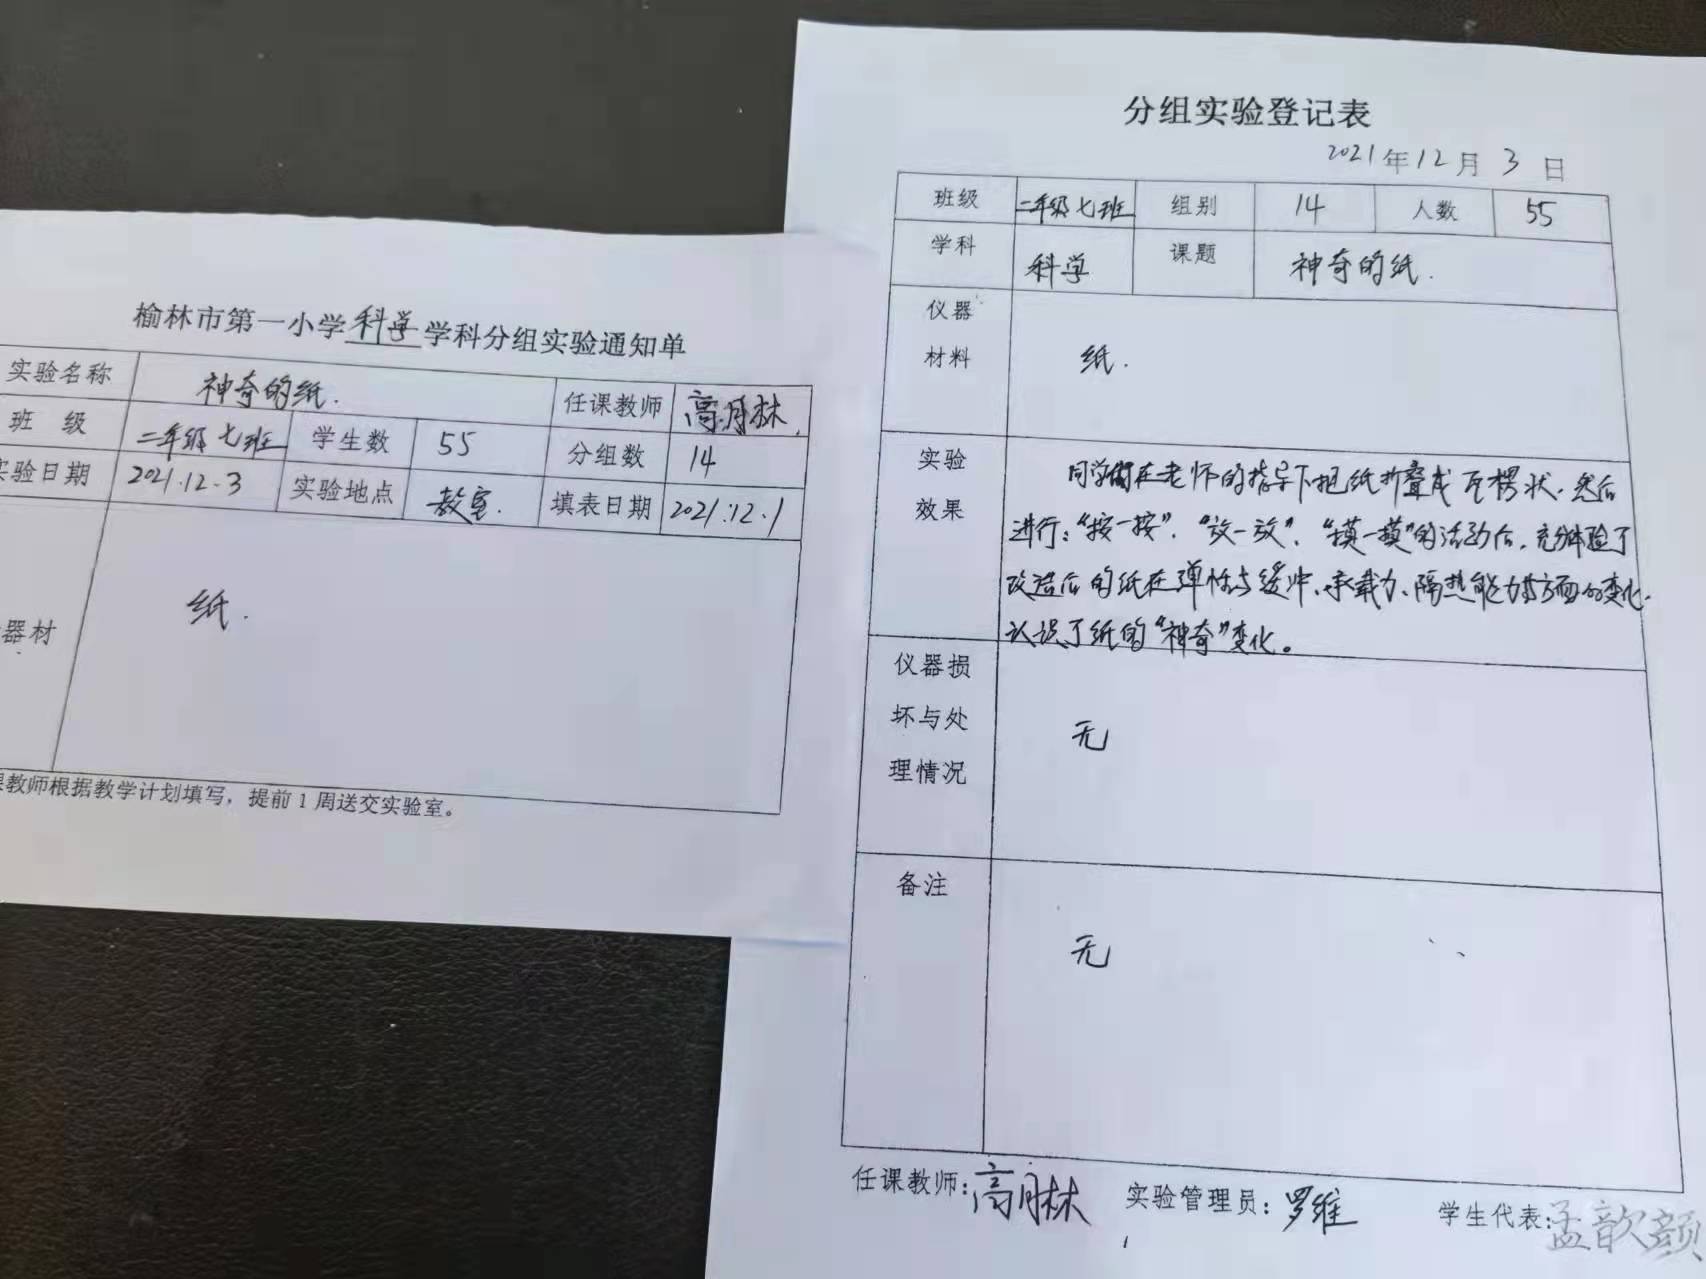 榆林市第一小学科学学科分组实验通知单
实验名称 神奇的纸. 任课教师 高月林
班 级 二年级七班 学生数 55 分组数 14
实验日期 2021.12.3 实验地点 教室. 填表日期 2021.12.1
器材 纸.
教师根据教学计划填写，提前1周送交实验室。
分组实验登记表
2021年12月3日
班级 二年级七班 组别 14 人数 55
学科 科学 课题 神奇的纸.
仪器
材料 纸.
实验
效果
同学们在老师的指导下把纸折叠成瓦楞状.然后
进行:“按一按”、“放一放”、“摸一摸”的活动后,充分体验了
改造后的纸在弹性与缓冲、承载力、隔热能力等方面的变化.
认识了纸的“神奇”变化。
仪器损
坏与处
理情况
无
备注
无
任课教师:高月林 实验管理员:罗维 学生代表:孟歆颜